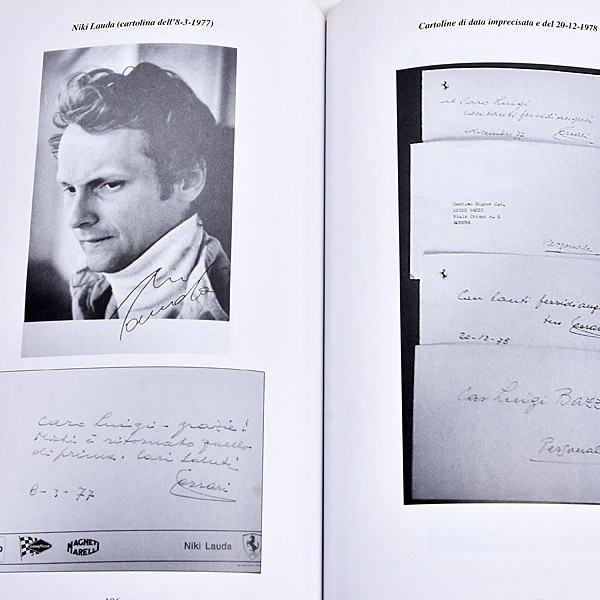 Niki Lauda (cartolina dell'8-3-1977)
Niki
Lauda
caro Luigi - grazie!
Niki è ritornato quello
di prima. Cari saluti
8-3-77 Ferrari
GOODYEAR MAGNETI MARELLI Niki Lauda
Cartoline di data imprecisata e del 20-12-1978
Caro Luigi
con tanti fervidi auguri
dicembre 77 Ferrari
Egregio Signor Cav.
LUIGI BAZZI
Viale Crispi n. 2
MODENA
Personale
Con tanti fervidi auguri
tuo Ferrari
20-12-78
Caro Luigi BAZZI
Personale